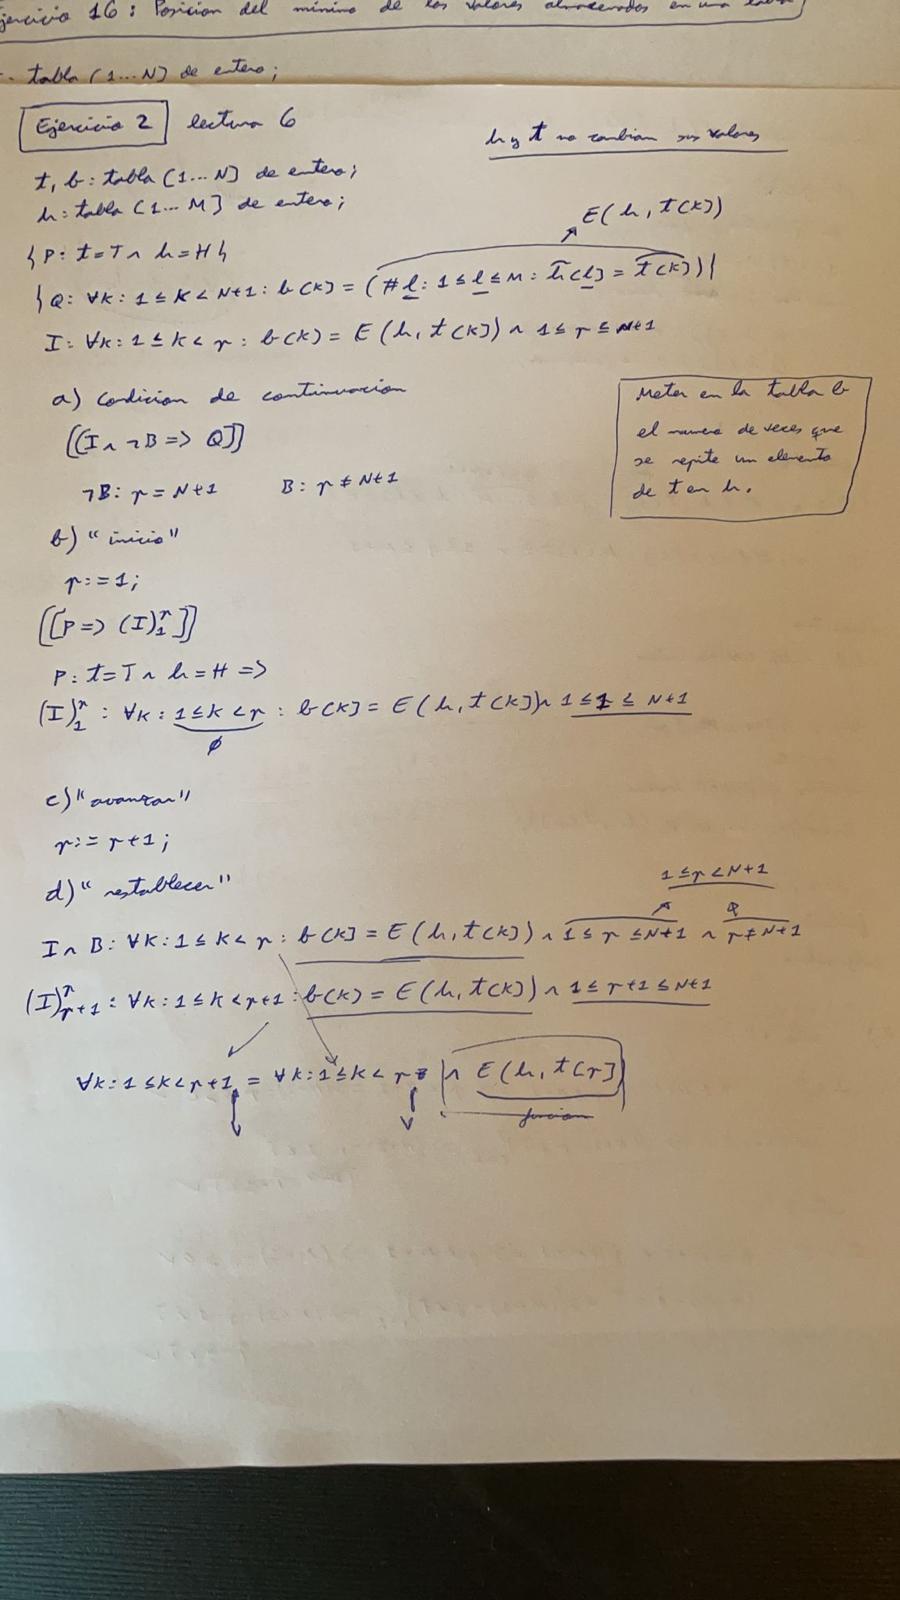 Ejercicio 16: Posicion del minimo de los valores almacenados en una tabla
tabla (1...N) de entero;
Ejercicio 2 lectura 6
h y t no cambian sus valores
t, b: tabla (1...N] de entero;
h: tabla (1...M] de entero;
E(h, t(k))
{P: t=T ∧ h=H}
{Q: ∀k: 1≤k<N+1: b(k) = (#l: 1≤l≤M: h(l] = t(k))}
I: ∀k: 1≤k<r: b(k) = E(h, t(k]) ∧ 1≤r≤N+1
a) condicion de continuacion
[[I ∧ ¬B => Q]]
¬B: r=N+1 B: r≠N+1
Meter en la tabla b
el numero de veces que
se repite un elemento
de t en h.
b) "inicio"
r:=1;
[[P => (I)₁ʳ]]
P: t=T ∧ h=H =>
(I)₁ʳ: ∀k: 1≤k<r: b(k] = E(h, t(k]) ∧ 1≤1≤N+1
∅
c) "avanzar"
r:=r+1;
d) "restablecer"
1≤r<N+1
I ∧ B: ∀k: 1≤k<r: b(k] = E(h, t(k]) ∧ 1≤r≤N+1 ∧ r≠N+1
(I)ʳᵣ₊₁: ∀k: 1≤k<r+1: b(k) = E(h, t(k]) ∧ 1≤r+1≤N+1
∀k: 1≤k<r+1 = ∀k: 1≤k<r ∧ E(h, t(r])
funcion